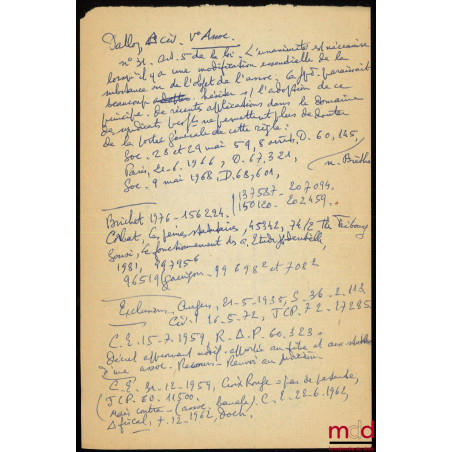 Dalloz civ. V° Assoc.
n° 31. art. 5 de la loi. L'unanimité est nécessaire
lorsqu'il y a une modification essentielle de la
substance ou de l'objet de l'assoc. La jpd. paraissait
beaucoup hésiter s/ l'adoption de ce
principe. De récents applications dans le domaine
des syndicats profs ne permettent plus de douter
de la portée générale de cette règle :
Soc. 28 et 29 mai 59, 8 arrêts, D. 60, 145,
Paris, 21-6-1966, D. 67, 321,
Soc. 9 mai 1968, D. 68, 601,
n. Brèthe
Brichet 1976 - 156294.
137587 - 207094.
150120 - 202459.
peines statutaires, 45342, 74/2 Th
le fonctionnement des
1981, 497956
96519 99 698² et 708²
Exclusions Angers, 21-5-1935, S. 36-2-113
Civ. 16-5-72, JCP. 72-17285
C.E. 15-7-1959, R.D.P. 60.323.
Décret approuvant modif. apportées au titre et aux statuts
d'une assoc. - Recours -
C.E. 31-12-1959, Croix Rouge = pas de
(JCP. 60-11500.
Mais contra - (assoc. banale) - C.E. 22-6-1962,
D fiscal, 7-12-1962, doch.
mdd